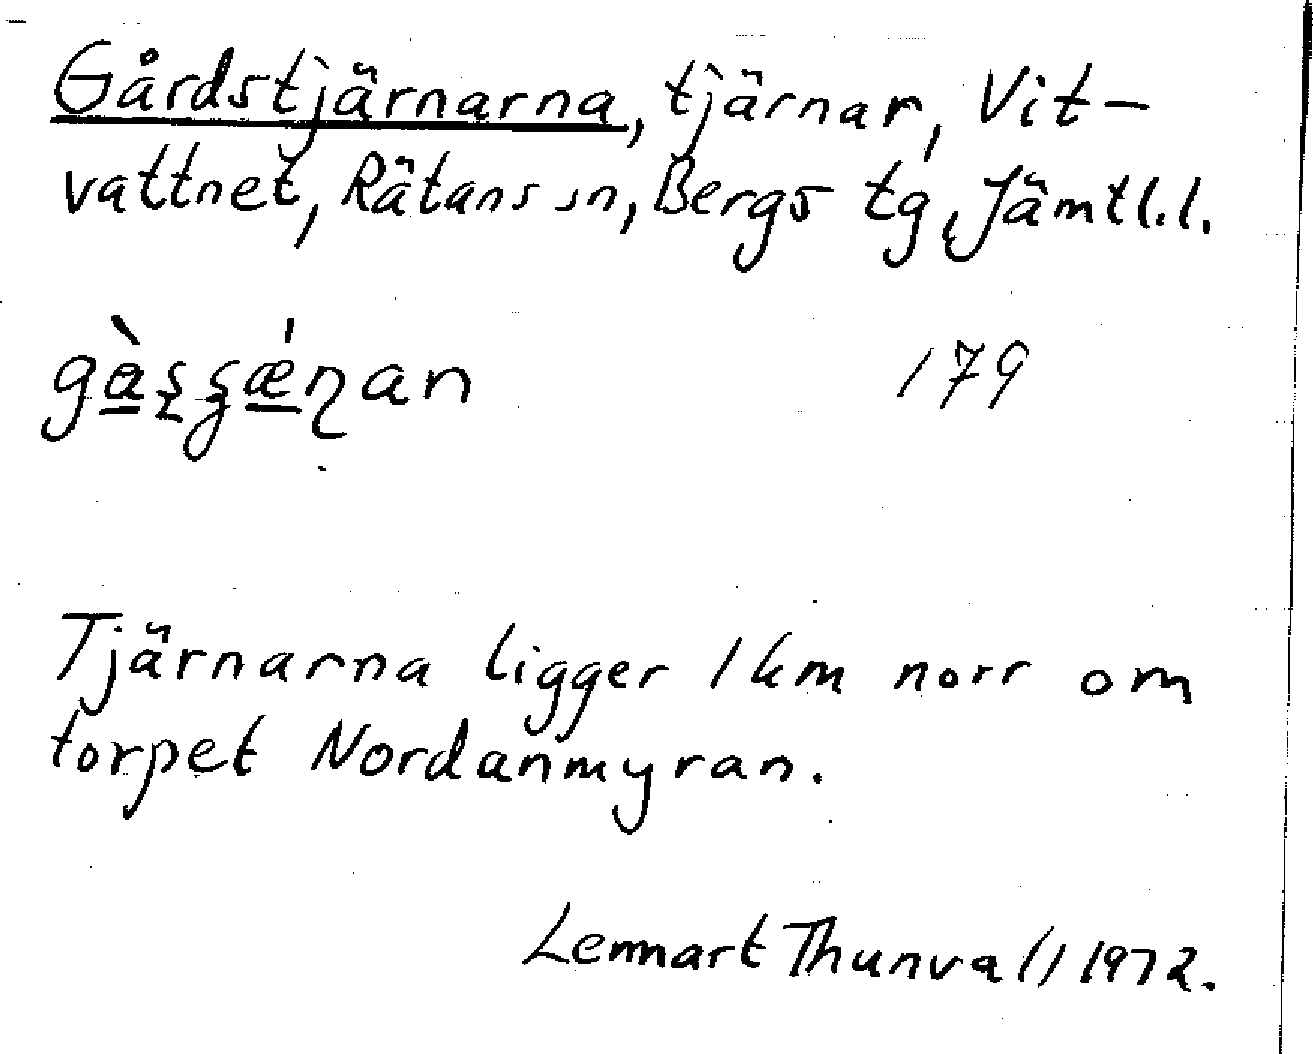 Gårdstjärnarna, tjärnar, Vit-
vattnet, Rätans sn, Bergs tg, Jämtl.l.
179
Tjärnarna ligger 1 km norr om
torpet Nordanmyran.
Lennart Thunvall 1972.